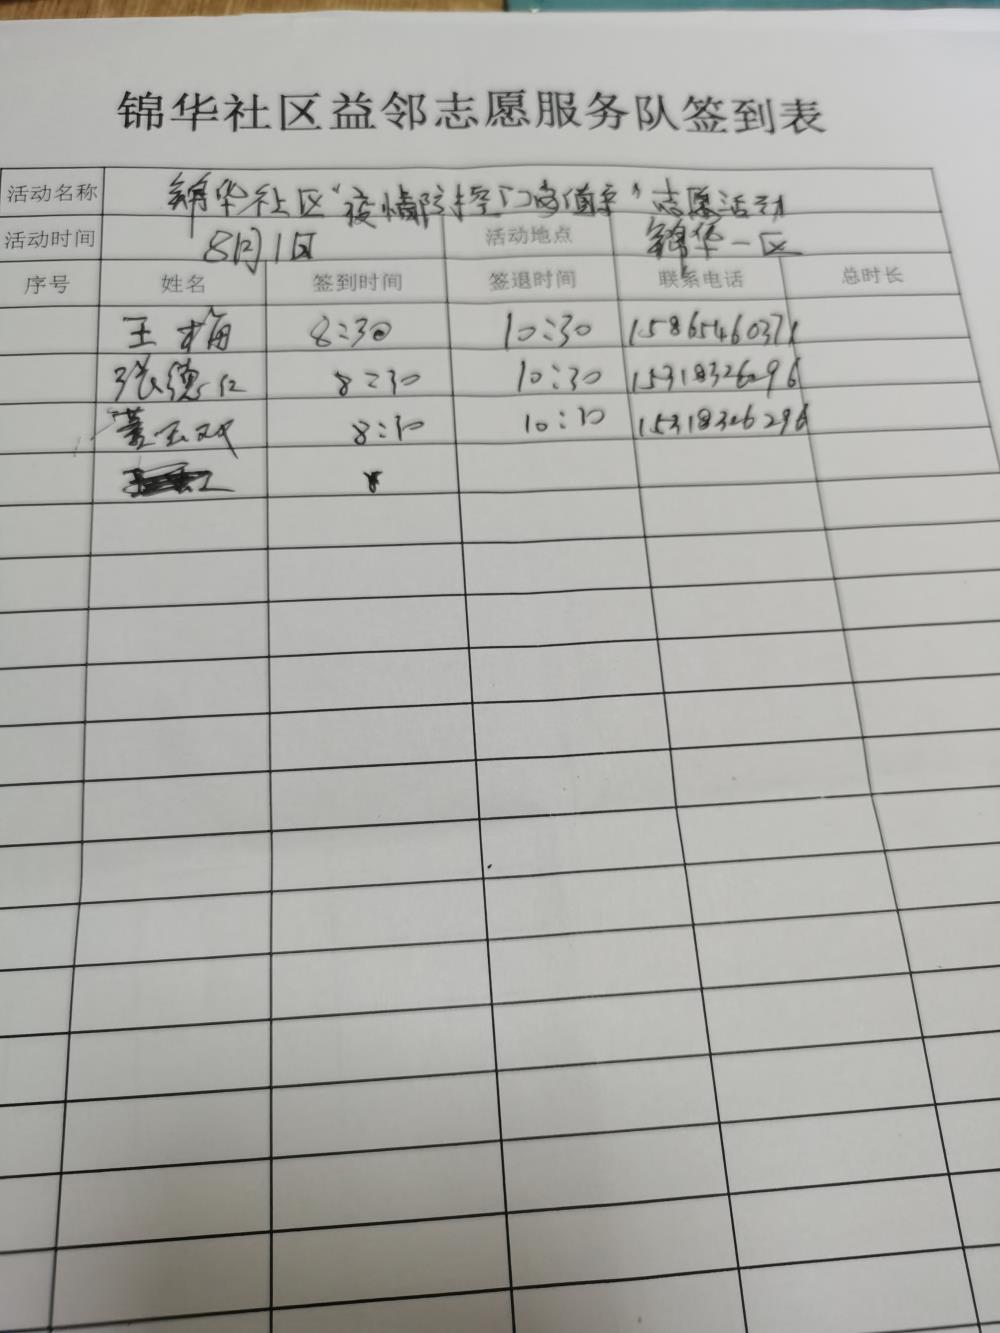 锦华社区益邻志愿服务队签到表
活动名称 锦华社区"疫情防控门岗值守"志愿活动
活动时间 8月1日 活动地点 锦华一区
序号 姓名 签到时间 签退时间 联系电话 总时长
王梅 8:30 10:30 15865460371
张德仁 8:30 10:30 15318326296
董玉双 8:30 10:30 15318326296